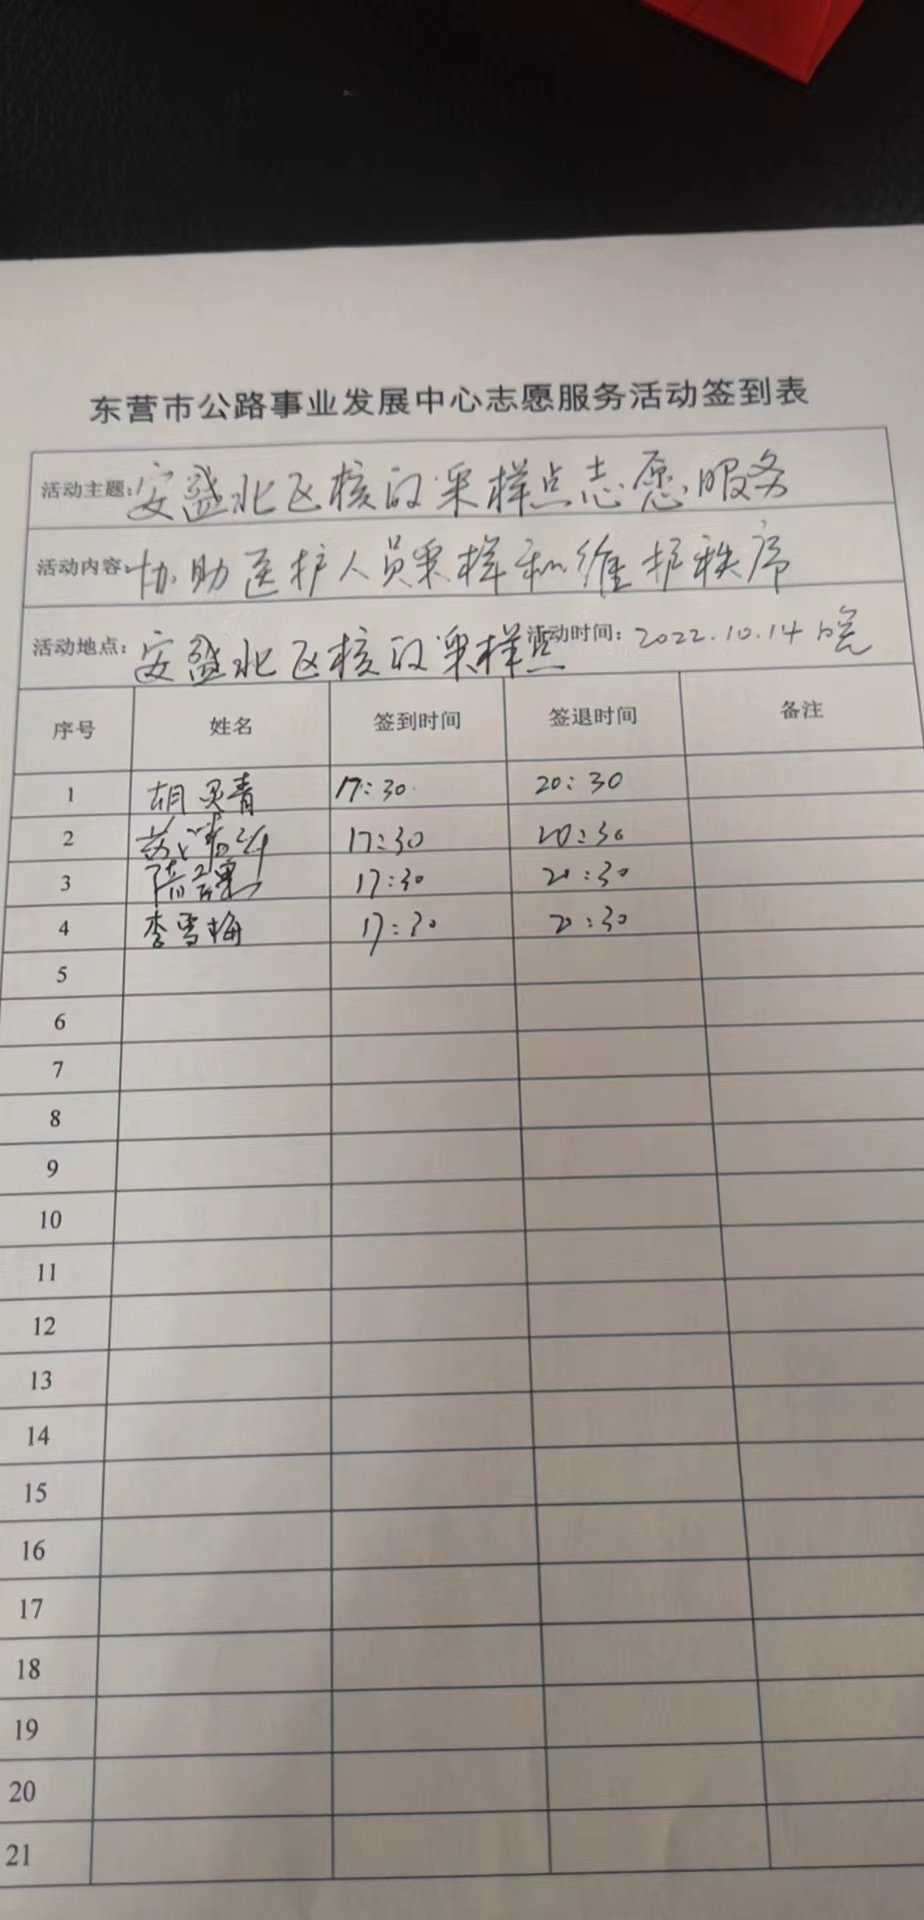 东营市公路事业发展中心志愿服务活动签到表
活动主题：安盛北区核酸采样点志愿服务
活动内容：协助医护人员采样和维护秩序
活动地点：安盛北区核酸采样点 活动时间：2022.10.14日晚
序号 姓名 签到时间 签退时间 备注
1 胡灵青 17:30 20:30
2 17:30 20:30
3 17:30 20:30
4 李雪梅 17:30 20:30
5
6
7
8
9
10
11
12
13
14
15
16
17
18
19
20
21